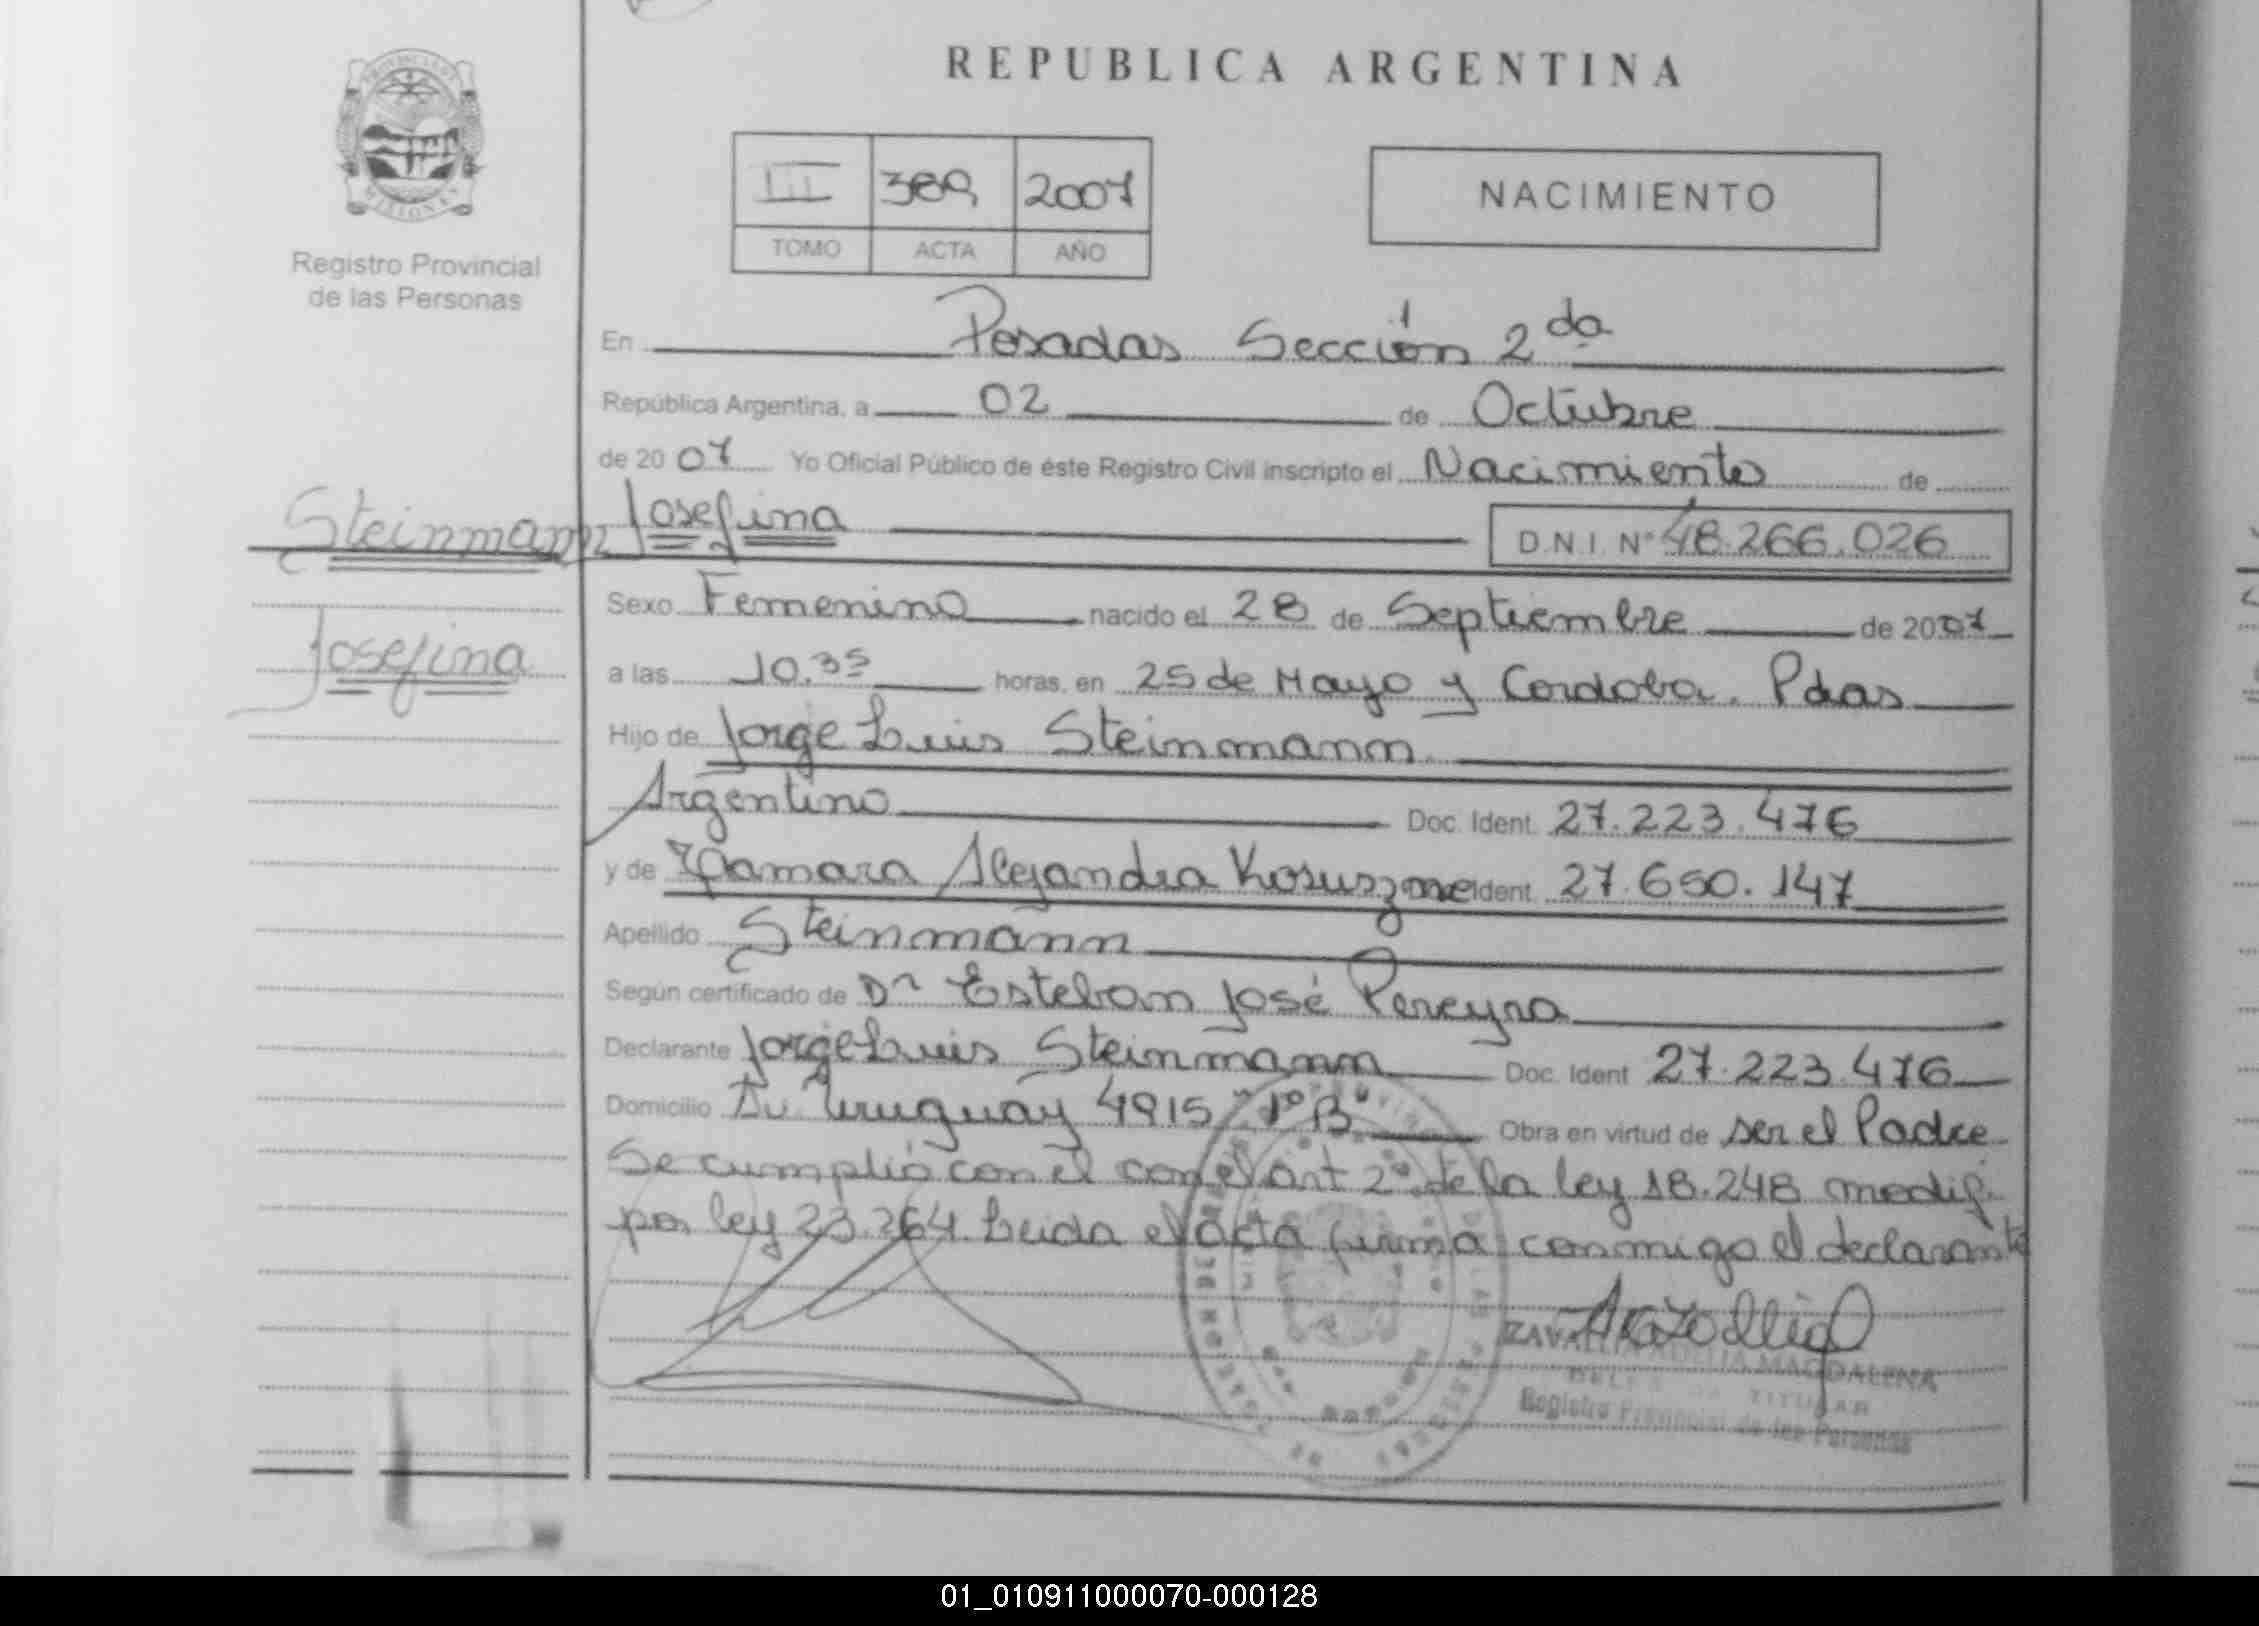 REPUBLICA ARGENTINA
PROVINCIA DE
MISIONES
Registro Provincial
de las Personas
III 389 2007
TOMO ACTA AÑO
NACIMIENTO
En Posadas Sección 2da
República Argentina, a 02 de Octubre
de 2007 Yo Oficial Público de éste Registro Civil inscripto el Nacimiento de
Steinmann
Josefina
Josefina D.N.I. Nº 48.266.026
Sexo Femenino nacido el 28 de Septiembre de 2007
a las 10.35 horas, en 25 de Mayo y Cordoba. Pdas
Hijo de Jorge Luis Steinmann
Argentino Doc. Ident. 27.223.476
y de Tamara Alejandra Ident. 27.650.147
Apellido Steinmann
Según certificado de Dr Esteban José Pereyra
Declarante Jorge Luis Steinmann Doc. Ident 27.223.476
Domicilio Av. Uruguay 4915 "1º B" Obra en virtud de ser el Padre
Se cumplió con el con el art 2º de la ley 18.248 modif.
por ley 23.264. Leida el acta firma conmigo el declarante
ZAVALLIA ADELIA MAGDALENA
TITULAR
Registro Provincial de las Personas
01_010911000070-000128